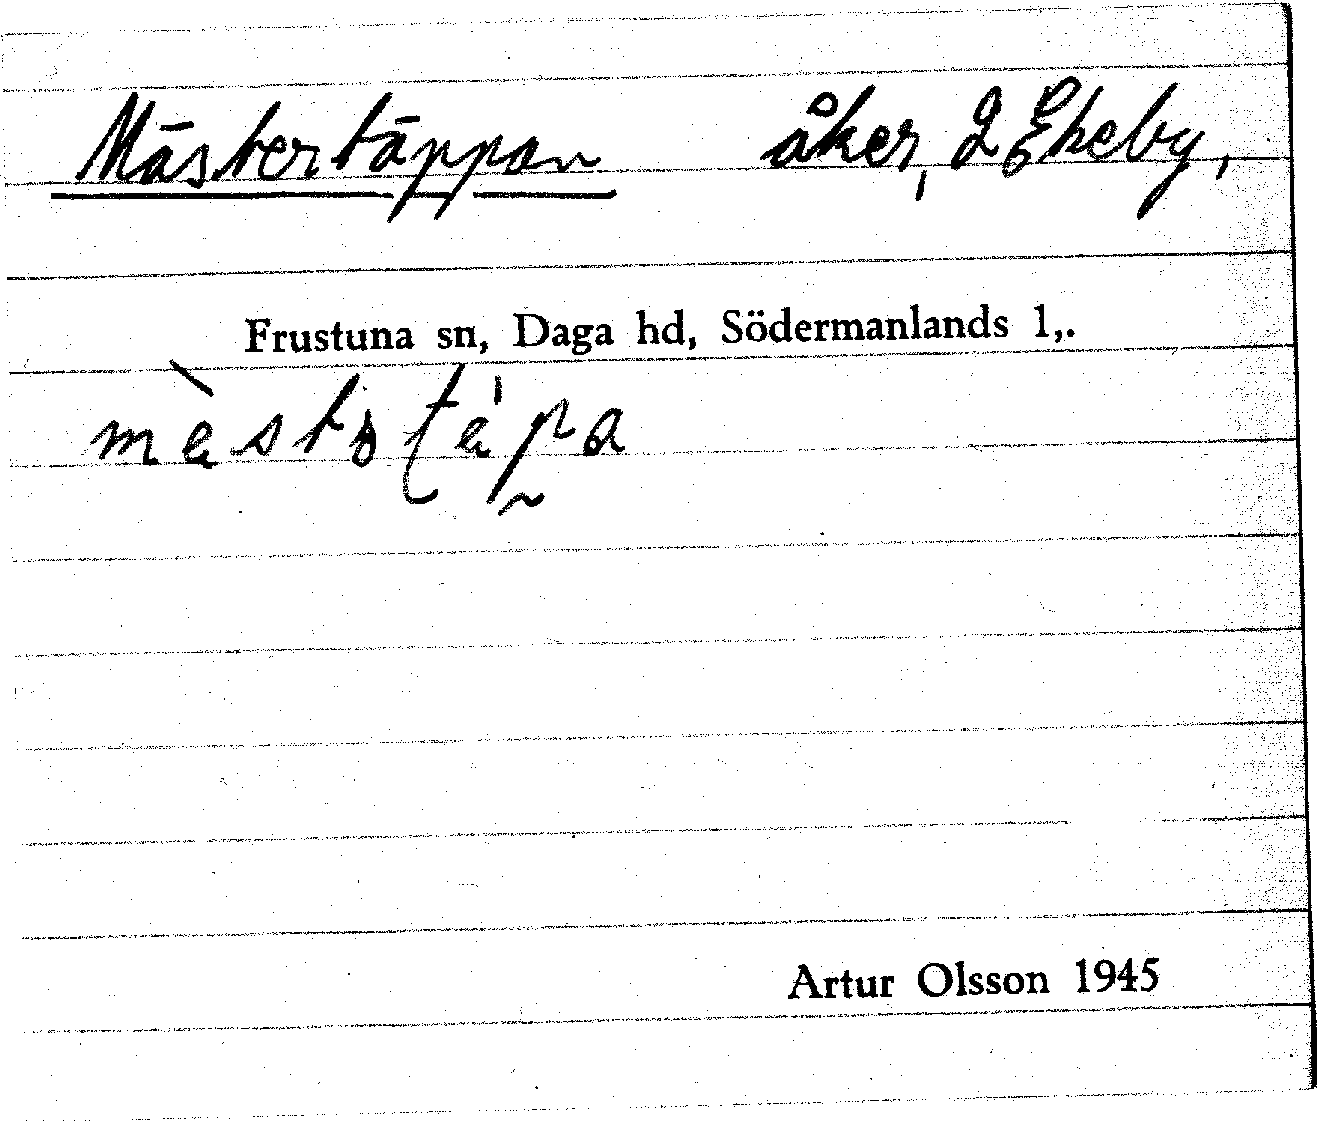 Mästertäppan åker, 2 Ekeby,
Frustuna sn, Daga hd, Södermanlands l,.
Artur Olsson 1945